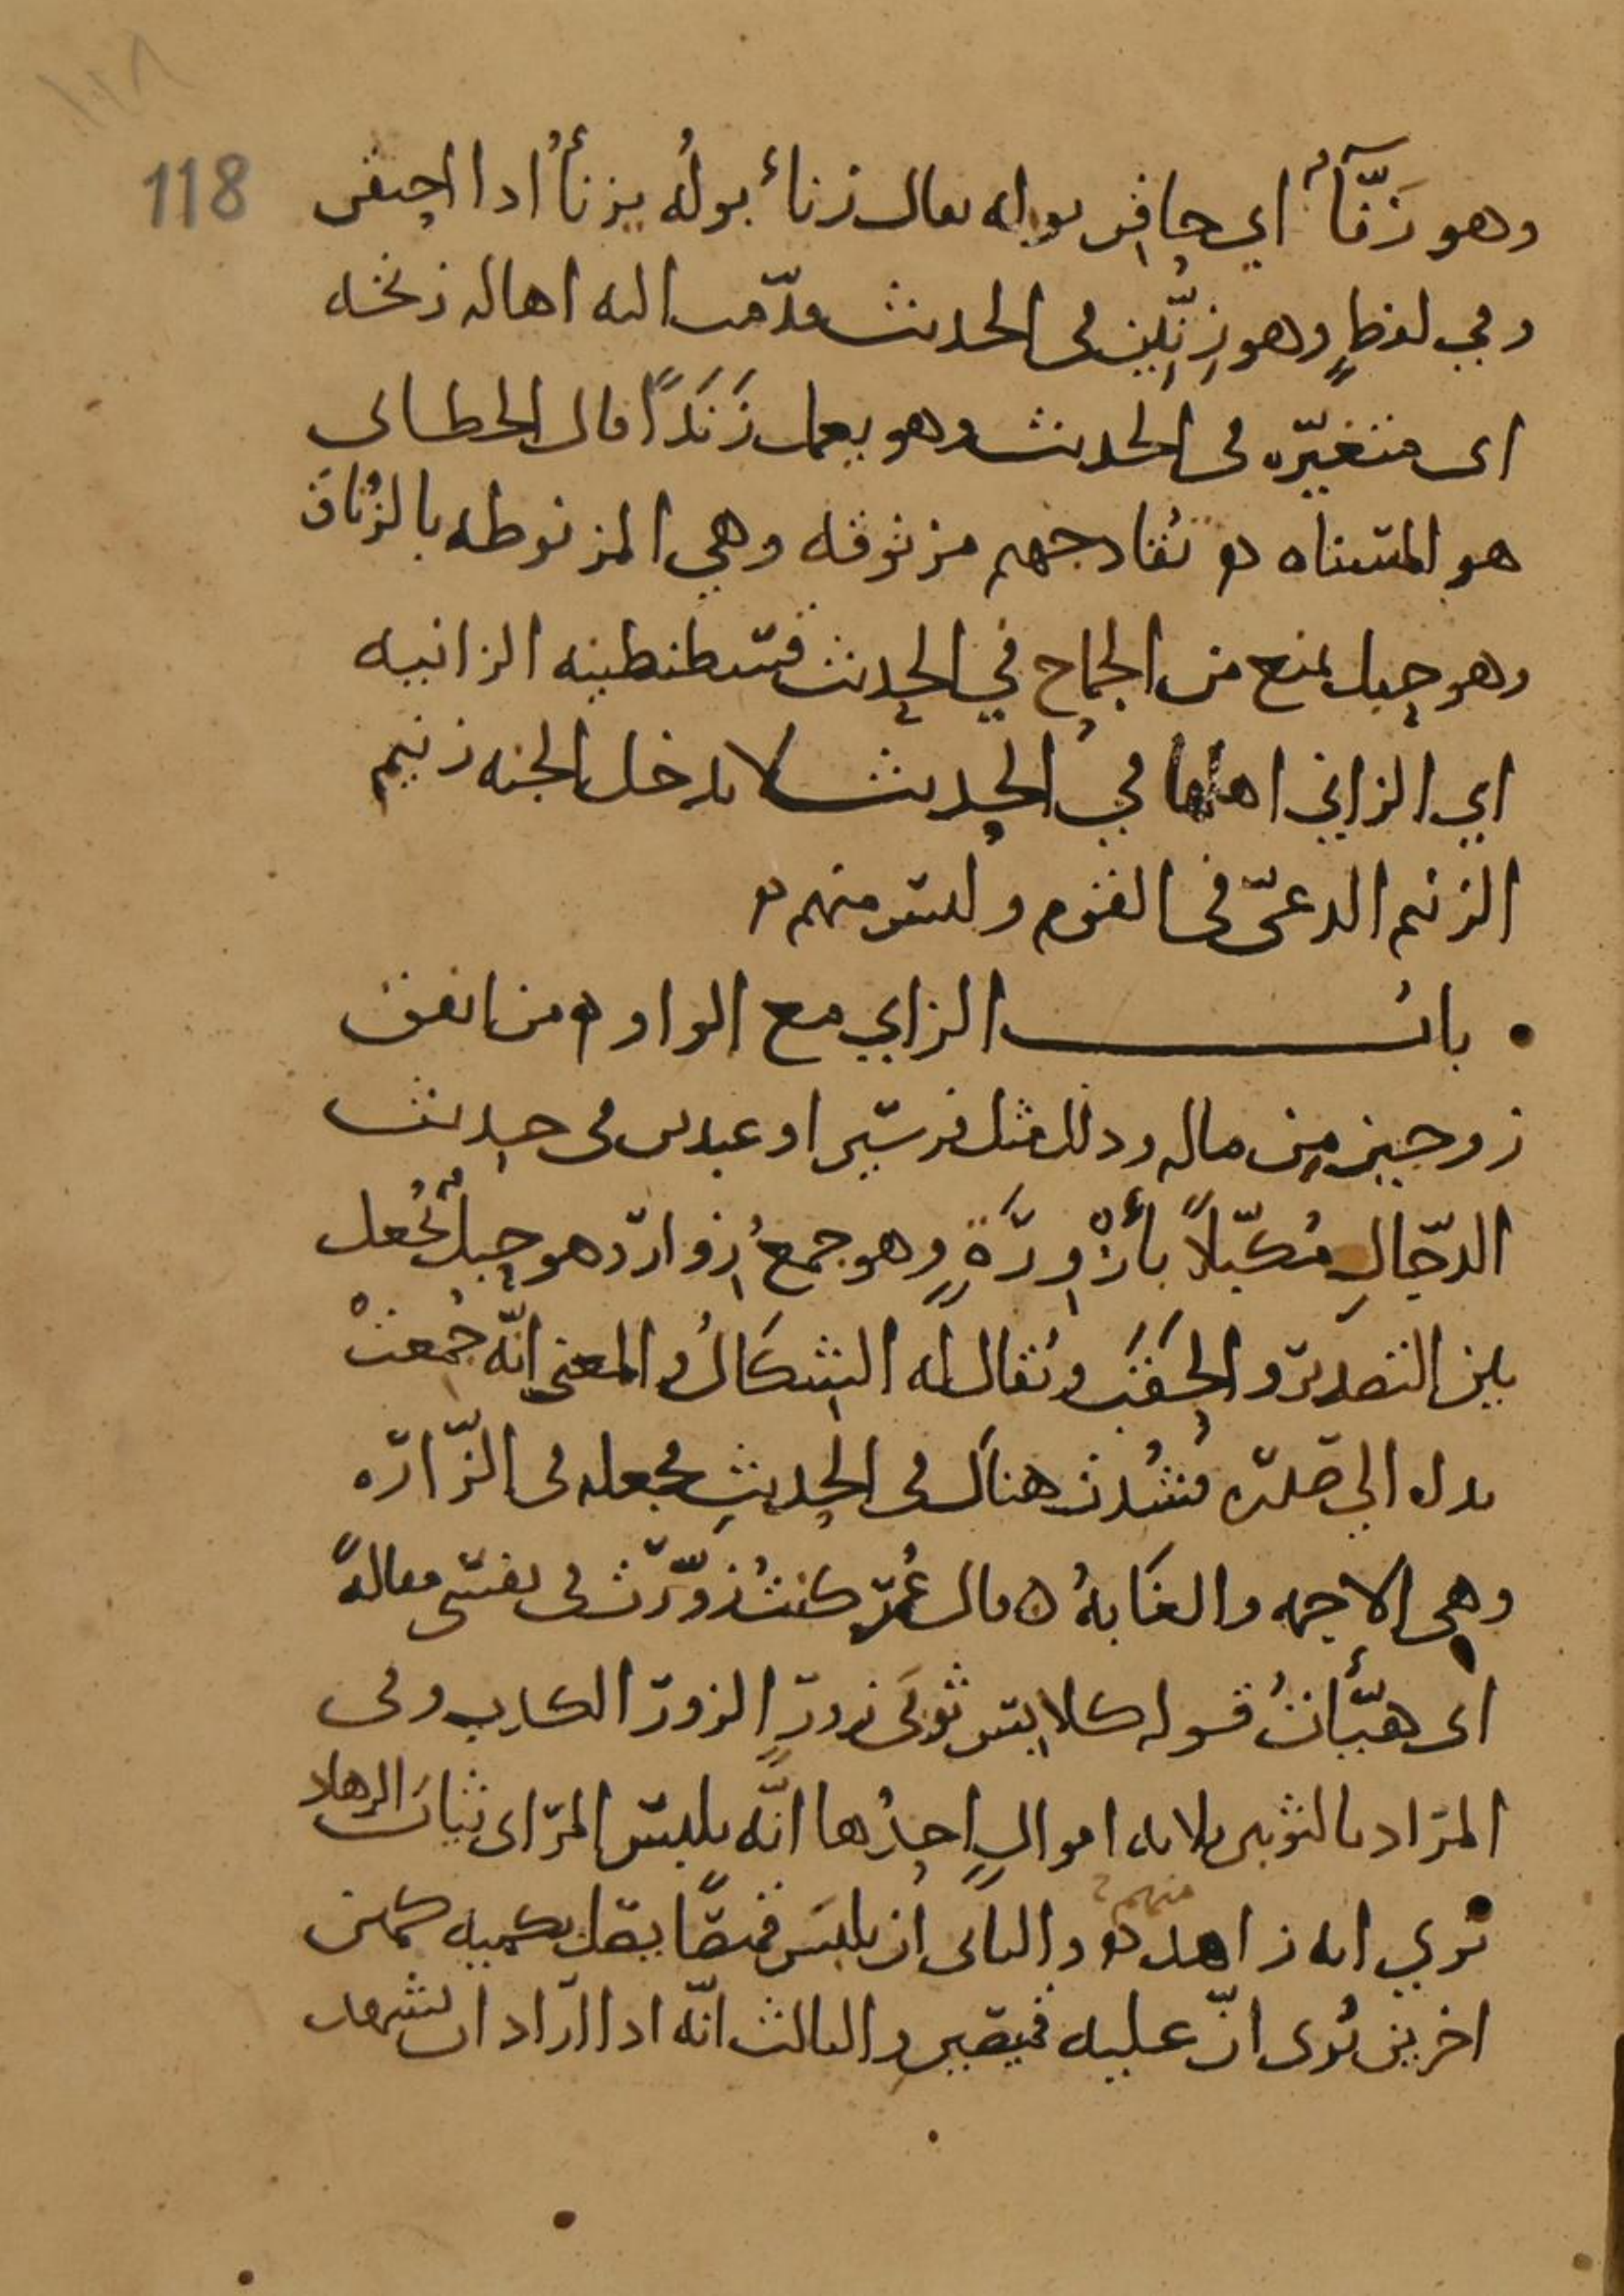 ١١٨
118
وهو زَنّآءٌ اي حاقن بوله يقال زنأ بولُه يزنأُ اذا احتقن
وفي لفظٍ وهو زِنِّين في الحديث فقدّمت اليه اهاله زنخه
اى متغيّره في الحديث وهو يعمل زَنَدًا قال الخطابي
هو المسناه ه تقاد جهنم مزنوقه وهي المربوطه بالزُناق
وهو حبل يمنع من الجماح في الحديث قسطنطينيه الزانيه
اي الزاني اهلها في الحديث لا يدخل الجنه زنيم
الزنيم الدعيّ في القوم وليس منهم ه
باب الزاي مع الواو ه من انفق
زوجين من ماله وذلك مثل فرسين او عبدين في حديث
الدجّالِ مُكبّلاً بأزْوِرَةٍ وهو جمعُ زِوارٍ وهو حبلٌ يُجعل
بين التصدير والحَقَبِ ويُقال له الشِكَالُ والمعنى انّه جُمعتْ
يداه الى صدره وشُدت هناك في الحديث فجعله في الزّاره
وهي الاجمه والغَابةُ ه قال عُمر كنتُ زوّرت في نفسي مقالةً
اى هيّأتُ قوله كلابس ثوبَى زورٍ الزور الكذب وفي
المراد بالثوبين ثلاثه اموالٍ احدُها انّه يلبس المرآى ثيابَ الزهاد
يُري انه زاهد منهم ه والثاني ان يلبسَ قميصًا يصل بكميه كمين
اخرين يُرى انّ عليه قميصين والثالث انّه اذا اراد ان يشهد